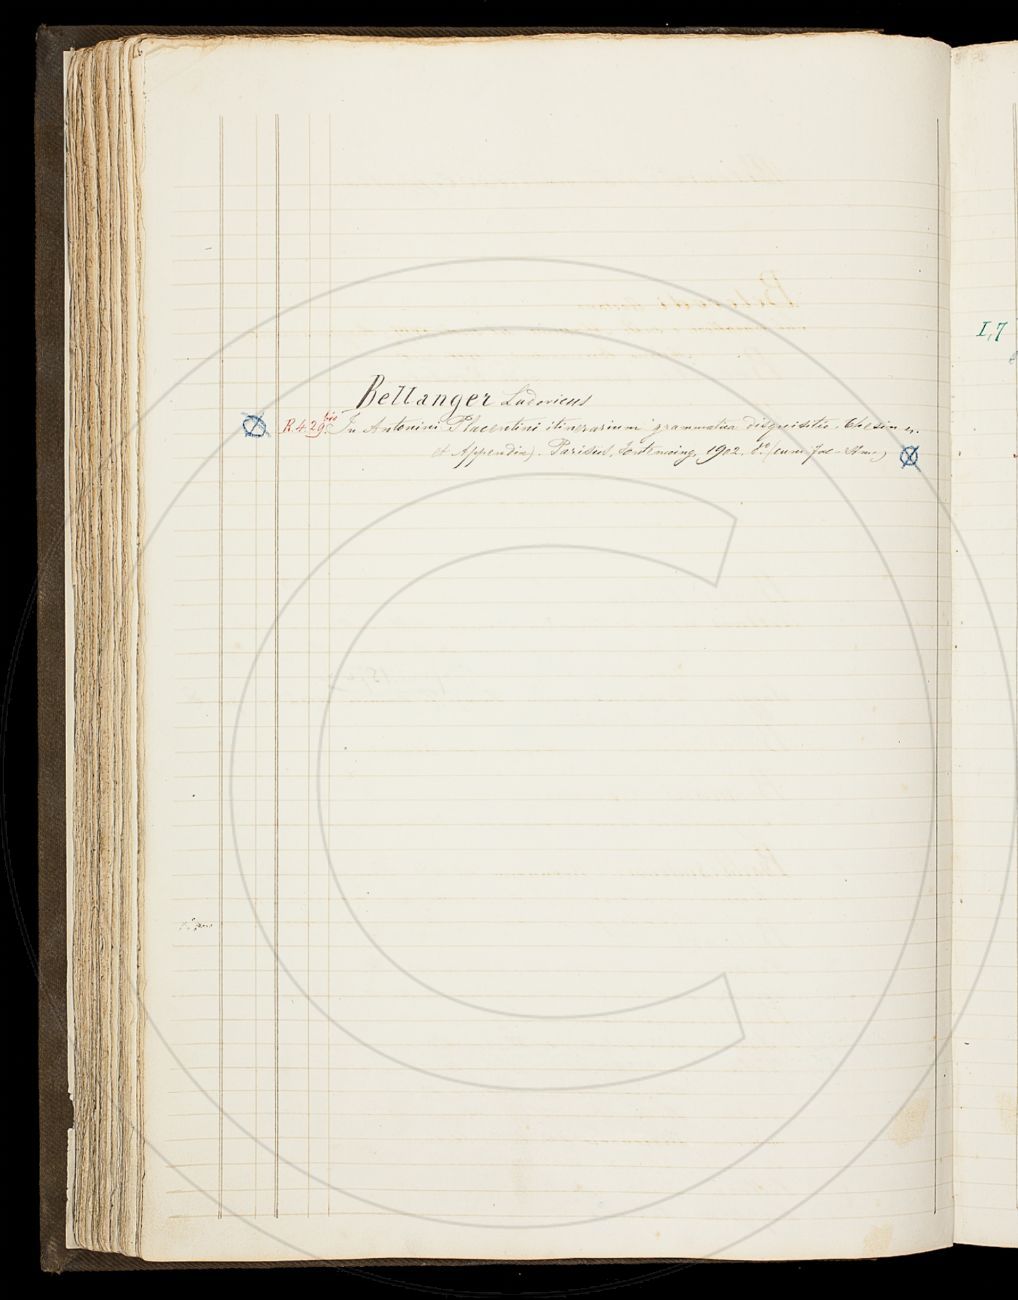 Bellanger Ludovicus
R.4.29. bis In Antonini Placentini itinerarium grammatica disquisitio. (Thesim
et Appendix). Parisiis, Fontemoing, 1902. 8.º (cum
I,7